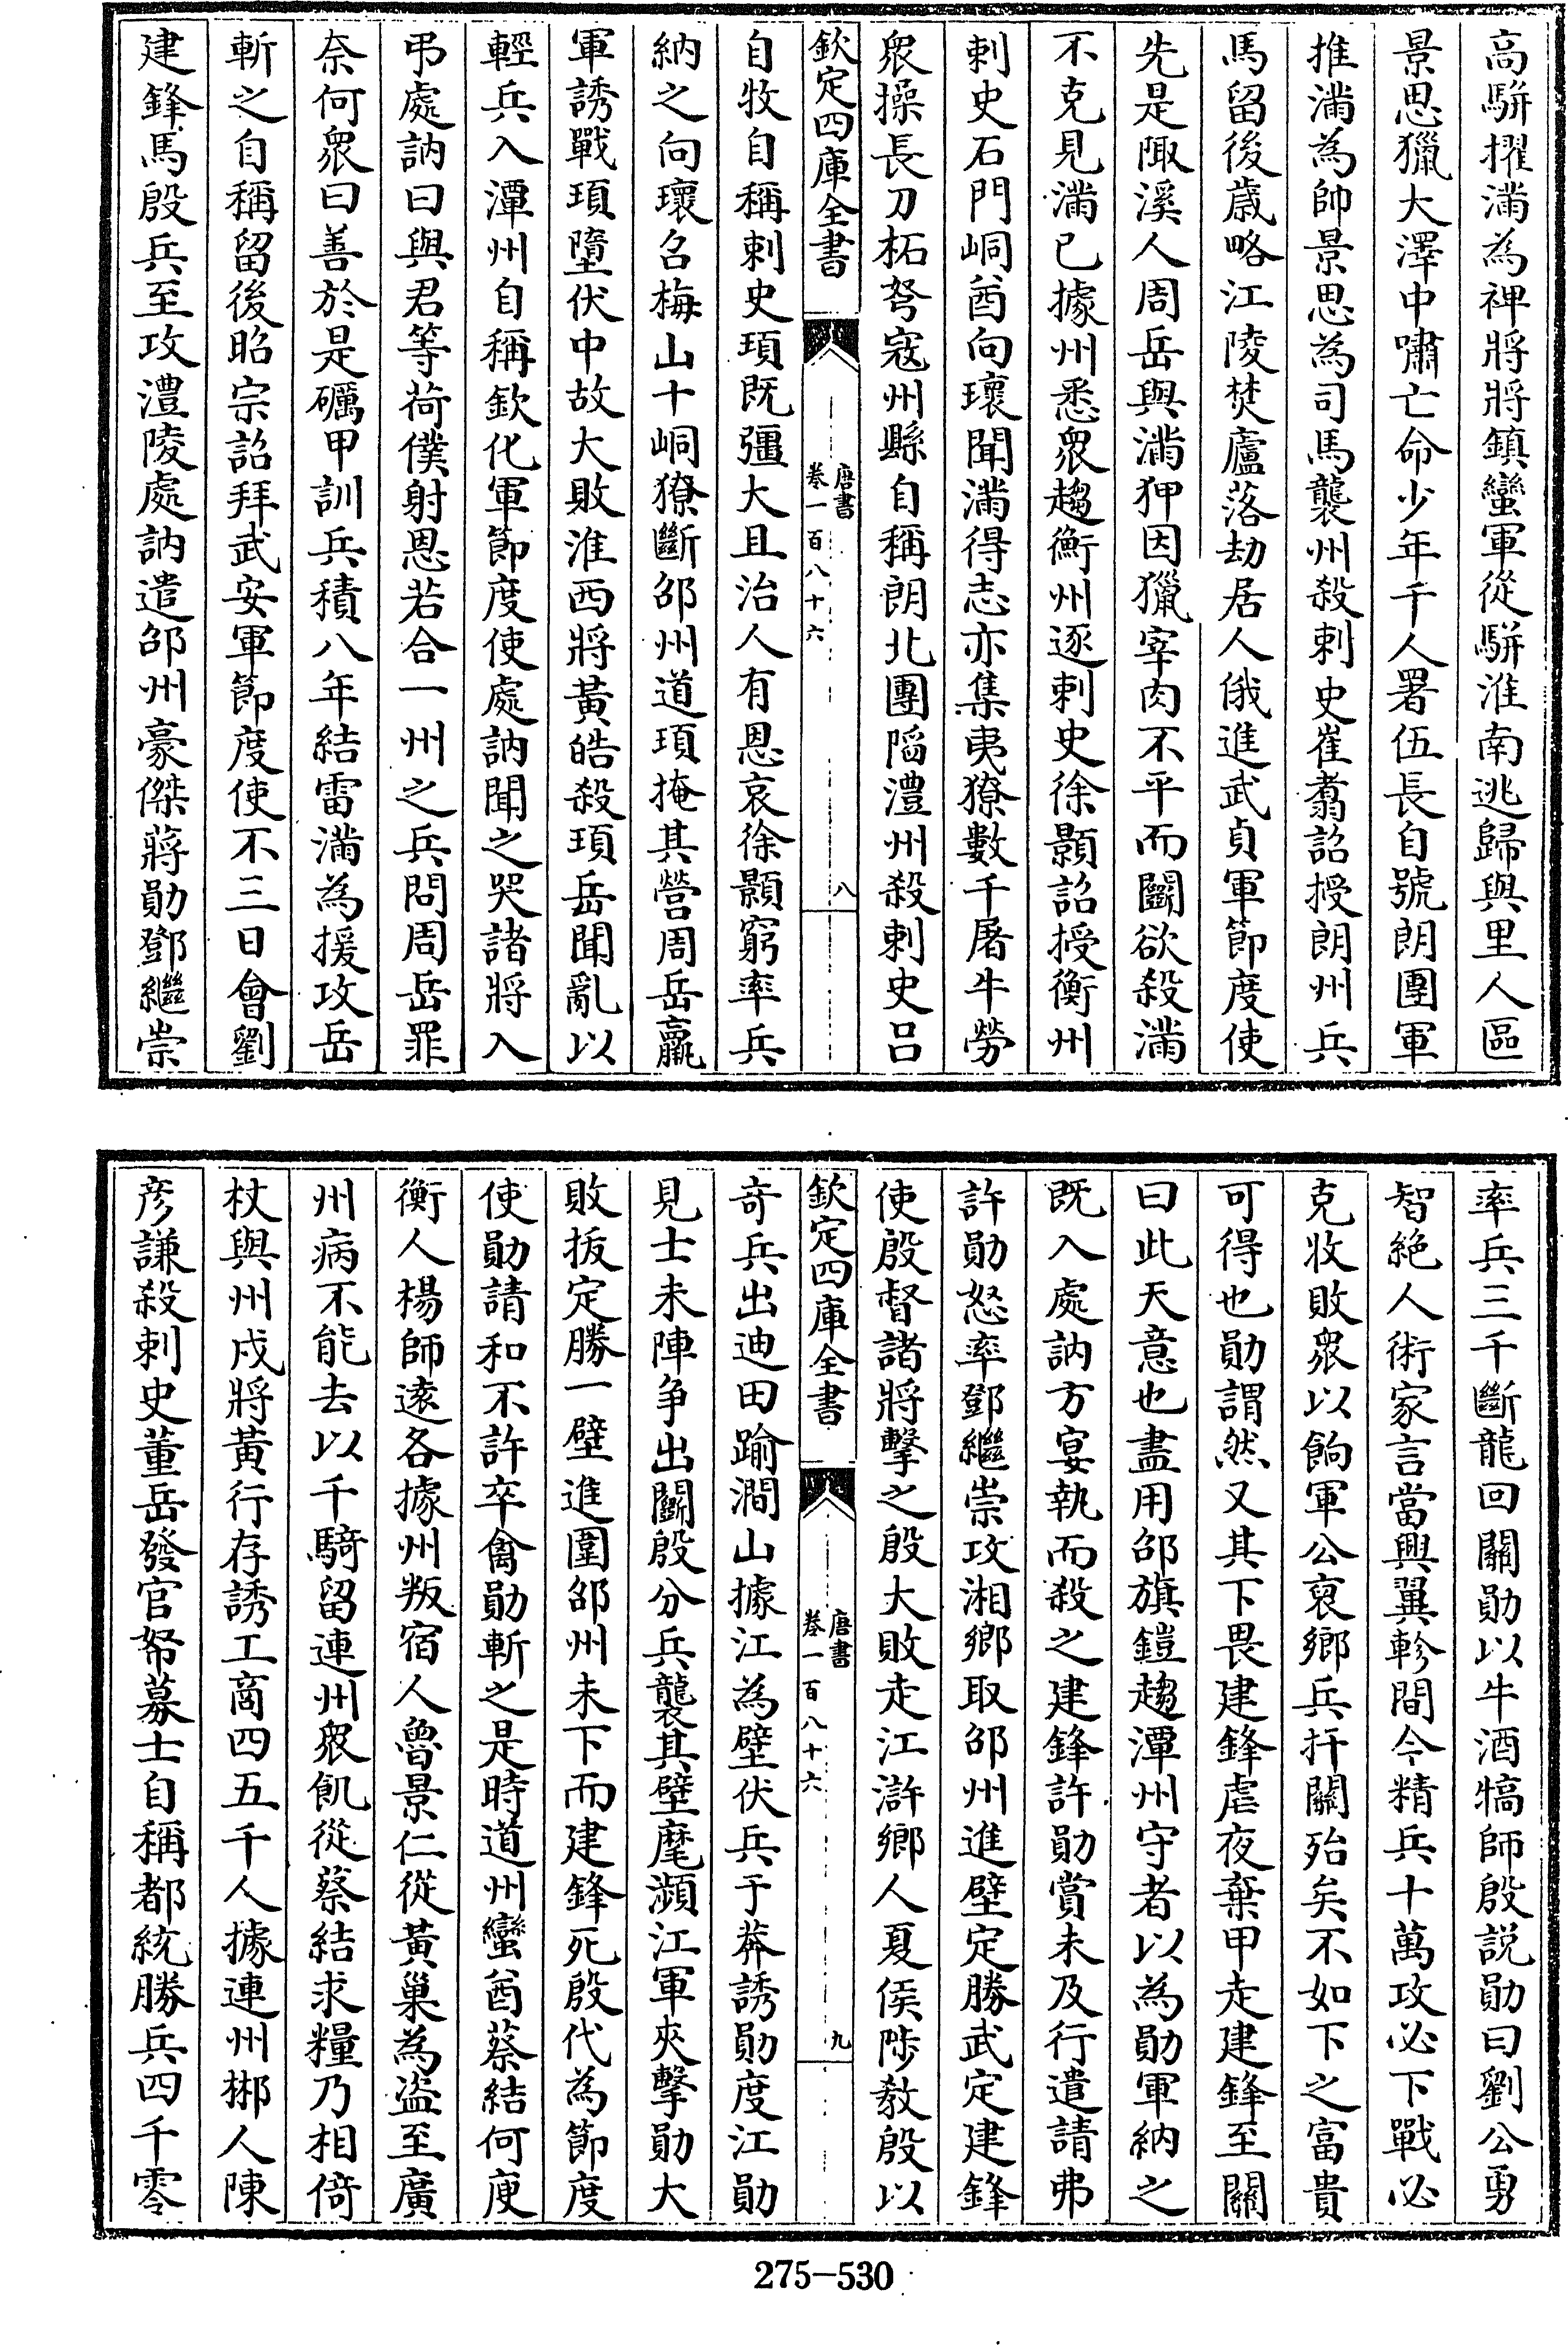 高駢擢滿為裨將將鎮蠻軍從駢淮南逃歸與里人區
景思獵大澤中嘯亡命少年千人署伍長自號朗團軍
推滿為帥景思為司馬襲州殺刺史崔翥詔授朗州兵
馬留後歲略江陵焚廬落劫居人俄進武貞軍節度使
先是陬溪人周岳與滿狎因獵宰肉不平而鬭欲殺滿
不克見滿已據州悉衆趨衡州逐刺史徐顥詔授衡州
刺史石門峒酋向瓌聞滿得志亦集夷獠數千屠牛勞
衆操長刀柘弩寇州縣自稱朗北團陷澧州殺刺史呂
欽定四庫全書
唐書
卷一百八十六
八
自牧自稱刺史頊既彊大且治人有恩哀徐顥窮率兵
納之向瓌召梅山十峒獠斷邵州道頊掩其營周岳羸
軍誘戰頊墮伏中故大敗淮西將黃皓殺頊岳聞亂以
輕兵入潭州自稱欽化軍節度使處訥聞之哭諸將入
弔處訥曰與君等荷僕射恩若合一州之兵問周岳罪
奈何衆曰善於是礪甲訓兵積八年結雷滿為援攻岳
斬之自稱留後昭宗詔拜武安軍節度使不三日會劉
建鋒馬殷兵至攻澧陵處訥遣邵州豪傑蔣勛鄧繼崇
率兵三千斷龍回關勛以牛酒犒師殷説勛曰劉公勇
智絕人術家言當興翼軫間今精兵十萬攻必下戰必
克收敗衆以餉軍公裒鄉兵扞關殆矣不如下之富貴
可得也勛謂然又其下畏建鋒虐夜棄甲走建鋒至關
曰此天意也盡用邵旗鎧趨潭州守者以為勛軍納之
既入處訥方宴執而殺之建鋒許勛賞未及行遣請弗
許勛怒率鄧繼崇攻湘鄉取邵州進壁定勝武定建鋒
使殷督諸將擊之殷大敗走江滸鄉人夏侯陟教殷以
欽定四庫全書
唐書
卷一百八十六
九
奇兵出迪田踰澗山據江為壁伏兵于莽誘勛度江勛
見士未陣爭出鬭殷分兵襲其壁麾瀕江軍夾擊勛大
敗拔定勝一壁進圍邵州未下而建鋒死殷代為節度
使勛請和不許卒禽勛斬之是時道州蠻酋蔡結何庾
衡人楊師遠各據州叛宿人魯景仁從黃巢為盜至廣
州病不能去以千騎留連州衆飢從蔡結求糧乃相倚
杖與州戍將黃行存誘工商四五千人據連州郴人陳
彦謙殺刺史董岳發官帑募士自稱都統勝兵四千零
275-530